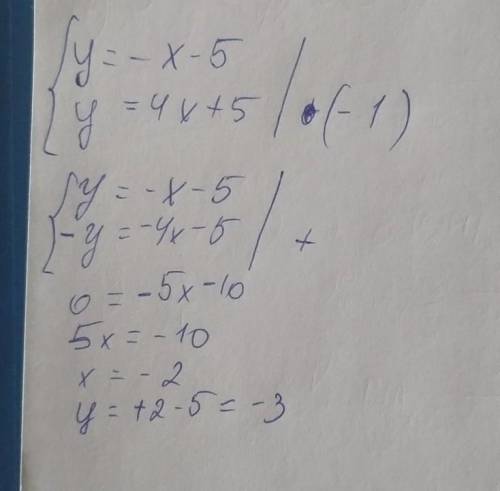 { y = -x - 5
y = 4x + 5 | • (-1)
{ y = -x - 5
-y = -4x - 5 | +
0 = -5x - 10
5x = -10
x = -2
y = +2 - 5 = -3